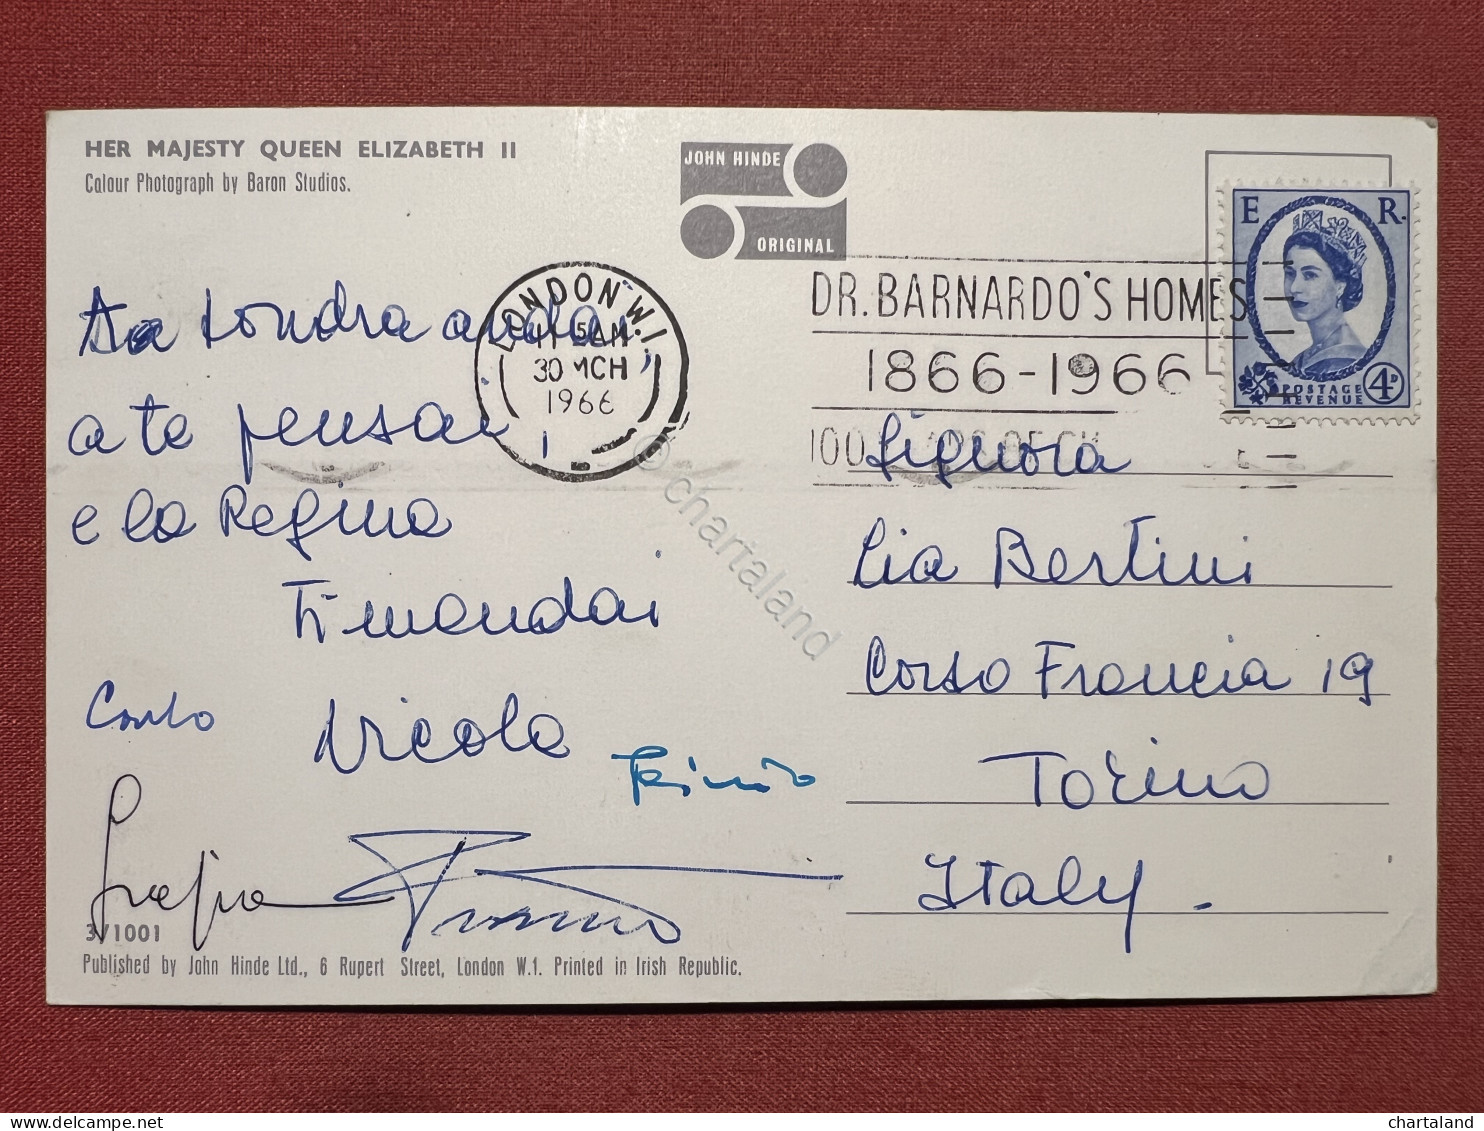 HER MAJESTY QUEEN ELIZABETH II
Colour Photograph by Baron Studios.
JOHN HINDE
ORIGINAL
E R.
POSTAGE
REVENUE
4D
LONDON W.1.
30 MCH
1966
DR. BARNARDO'S HOMES
1866-1966
100
A Londra andai,
a te pensai
e la Regina
Ti mandai
Carlo
Nicola
Signora
Lia Bertini
Corso Francia 19
Torino
Italy.
3/1001
Published by John Hinde Ltd., 6 Rupert Street, London W.1. Printed in Irish Republic.
© chartaland
delcampe.net
chartaland